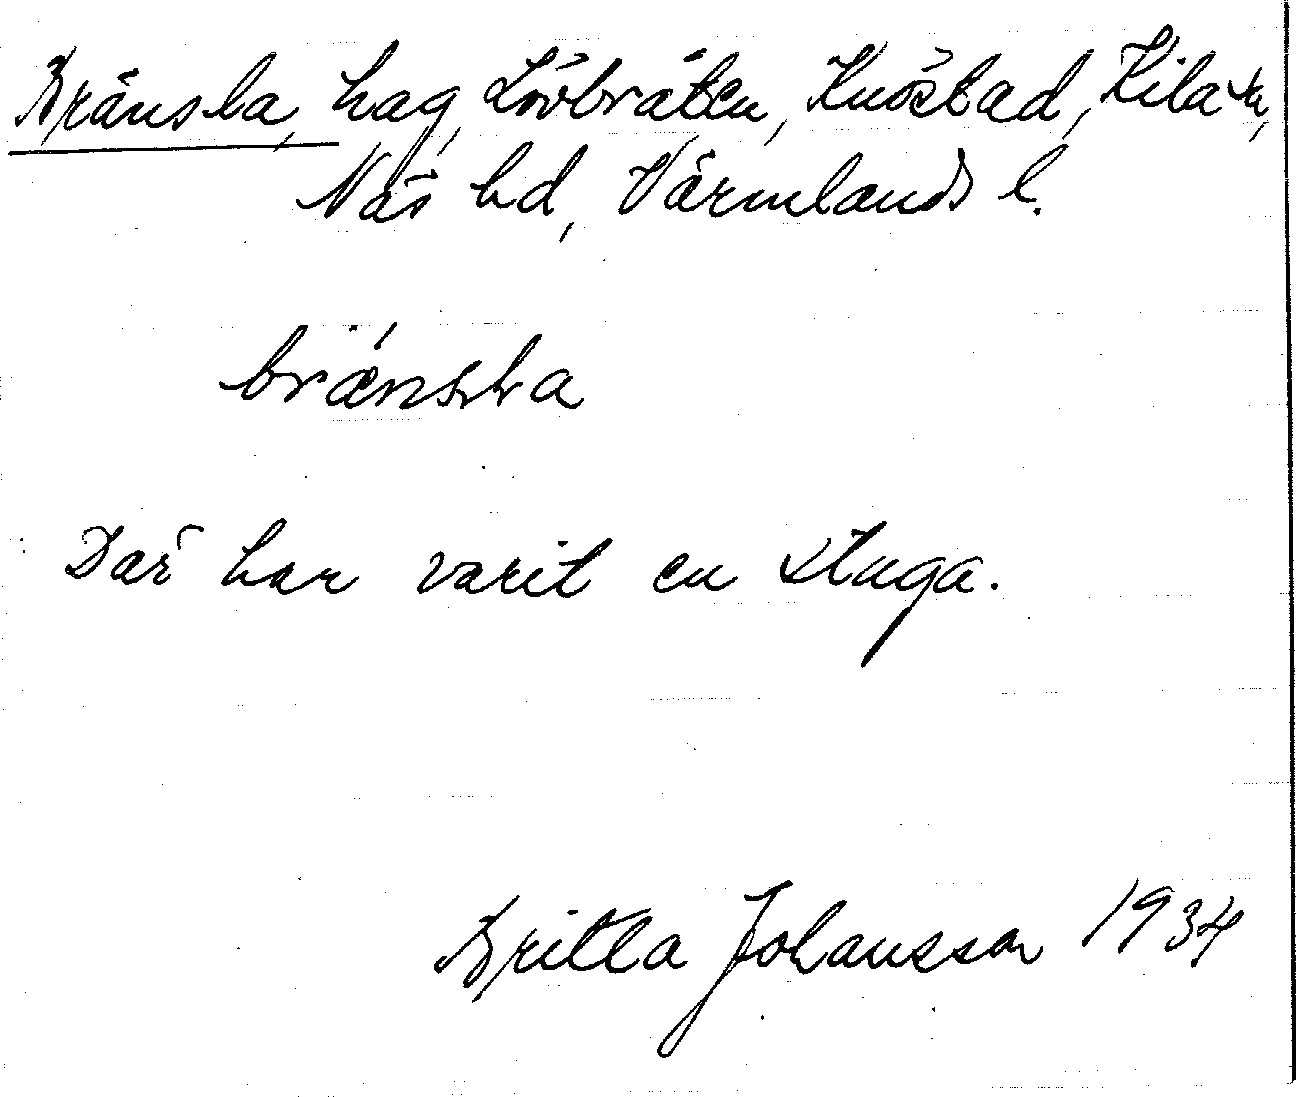 Bränska, hag, Lövbråten, Knöstad, Kila sn,
Näs hd, Värmlands l.
brä́nska
Där har varit en stuga.
Britta Johansson 1934